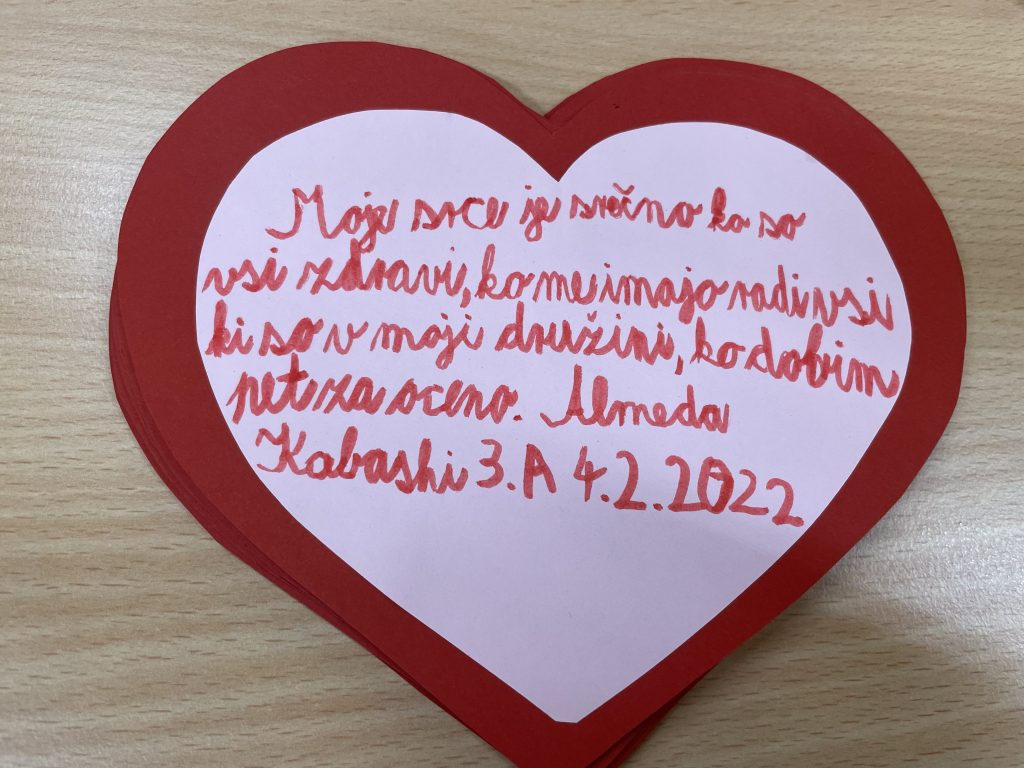 Moje srce je srečno ko so
vsi zdravi, ko me imajo radi vsi
ki so v moji družini, ko dobim
pet za oceno. Almeda
Kabashi 3.A 4.2.2022